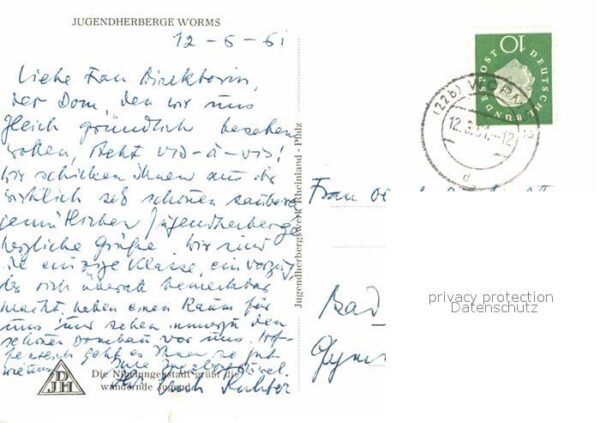 JUGENDHERBERGE WORMS
12-6-61
Liebe Frau Direktorin,
der Dom, den wir uns
gleich gründlich besehen
wollen, steht vis-à-vis!
Wir schicken Ihnen aus der
wirklich sehr schönen saubere
gemütlichen Jugendherberge
herzliche Grüße. Wir sind
die einzige Klasse, ein Vorzug,
der sich überall bemerkbar
macht, haben einen Raum für
uns und sehen den
schönen vor uns. Hof-
fentlich geht es Ihnen so gut
wie uns.
Ihre
Richter
Die Nibelungenstadt grüßt die
wandernde Jugend
DJH
Jugendherbergswerk Rheinland-Pfalz
10
DEUTSCHE
BUNDESPOST
(22b) WORMS
12.
-12
Frau
Bad
Gymn
privacy protection
Datenschutz